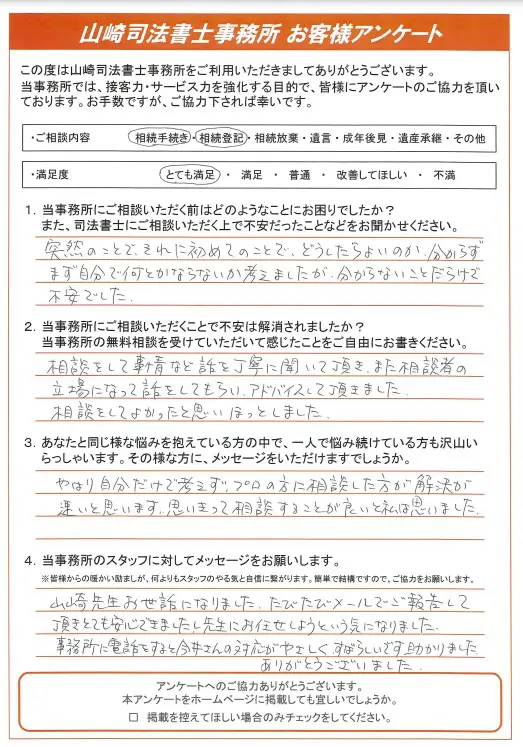 山崎司法書士事務所 お客様アンケート
この度は山崎司法書士事務所をご利用いただきましてありがとうございます。
当事務所では、接客力・サービス力を強化する目的で、皆様にアンケートのご協力を頂い
ております。お手数ですが、ご協力下されば幸いです。
・ご相談内容 相続手続き・相続登記・相続放棄・遺言・成年後見・遺産承継・その他
・満足度 とても満足 ・ 満足 ・ 普通 ・ 改善してほしい ・ 不満
1. 当事務所にご相談いただく前はどのようなことにお困りでしたか？
また、司法書士にご相談いただく上で不安だったことなどをお聞かせください。
突然のことで、それに初めてのことで、どうしたらよいのか、分からず
まず自分で何とかならないか考えましたが、分からないことだらけで
不安でした。
2. 当事務所にご相談いただくことで不安は解消されましたか？
当事務所の無料相談を受けていただいて感じたことをご自由にお書きください。
相談をして事情など話を丁寧に聞いて頂き、また相談者の
立場になって話をしてもらい、アドバイスして頂きました。
相談をしてよかったと思いほっとしました。
3. あなたと同じ様な悩みを抱えている方の中で、一人で悩み続けている方も沢山い
らっしゃいます。その様な方に、メッセージをいただけますでしょうか。
やはり自分だけで考えず、プロの方に相談した方が解決が
速いと思います。思いきって相談することが良いと私は思いました。
4. 当事務所のスタッフに対してメッセージをお願いします。
※皆様からの暖かい励ましが、何よりもスタッフのやる気と自信に繋がります。簡単で結構ですので、ご協力をお願いします。
山崎先生お世話になりました。たびたびメールでご報告して
頂きとても安心できましたし先生にお任せしようという気になりました。
事務所に電話をすると今井さんの対応がやさしく、すばらしいです助かりました
ありがとうございました。
アンケートへのご協力ありがとうございます。
本アンケートをホームページに掲載しても宜しいでしょうか。
□ 掲載を控えてほしい場合のみチェックをしてください。